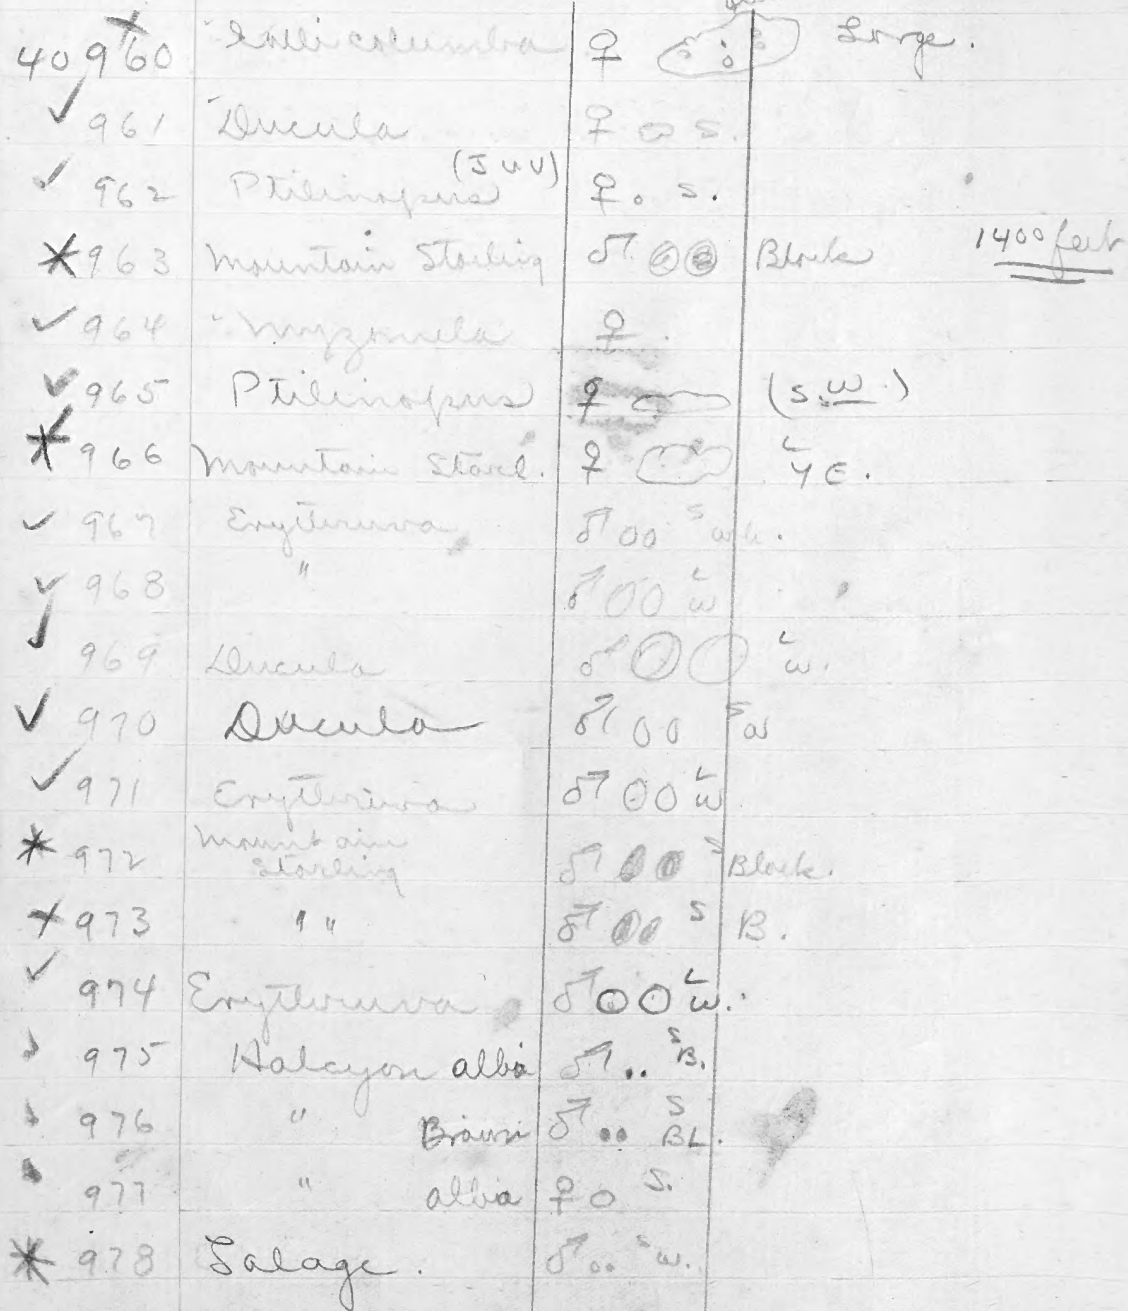 40 960 Gallicolumba ♀ Large.
961 Ducula ♀ S.
962 Ptilinopus (Juv) ♀ . S.
963 Mountain Starling ♂ Black 1400 feet
964 Myzomela ♀ .
965 Ptilinopus ♀ (S.W.)
966 Mountain Starl. ♀ L YE.
967 Erythrura ♂ S wh.
968 " ♂ L W
969 Ducula ♂ L W.
970 Ducula ♂ S W
971 Erythrura ♂ L W
972 Mountain Starling ♂ S Black.
973 " " ♂ S B.
974 Erythrura ♂ L W.
975 Halcyon alba ♂ .. S B.
976 " Brown ♂ .. S BL.
977 " alba ♀ S.
978 Lalage. ♂ .. S W.